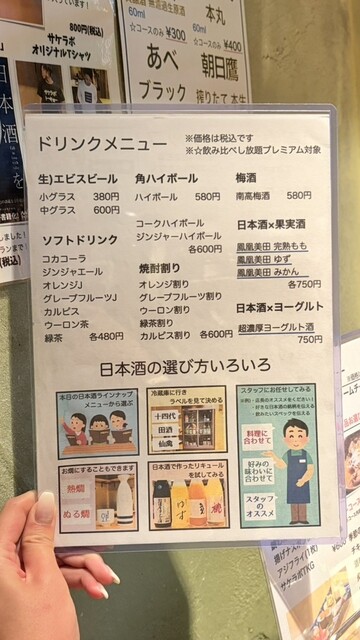 800円(税込)
サケラボ
オリジナルTシャツ
60ml
☆コースのみ ¥300
あべ
ブラック
本丸
60ml
☆コースのみ ¥400
朝日鷹
搾りたて 本生
日本酒を
ドリンクメニュー
※価格は税込です
※☆飲み比べし放題プレミアム対象
生)エビスビール
小グラス 380円
中グラス 600円
ソフトドリンク
コカコーラ
ジンジャエール
オレンジJ
グレープフルーツJ
カルピス
ウーロン茶
緑茶 各480円
角ハイボール
ハイボール 580円
コークハイボール
ジンジャーハイボール
各600円
焼酎割り
オレンジ割り
グレープフルーツ割り
ウーロン割り
緑茶割り
カルピス割り 各600円
梅酒
南高梅酒 580円
日本酒×果実酒
鳳凰美田 完熟もも
鳳凰美田 ゆず
鳳凰美田 みかん
各750円
日本酒×ヨーグルト
超濃厚ヨーグルト酒
750円
日本酒の選び方いろいろ
本日の日本酒ラインナップ
メニューから選ぶ
冷蔵庫に行き
ラベルを見て決める
十四代
田酒
仙禽
スタッフにお任せしてみる
料理に
合わせて
好みの
味わいに
合わせて
スタッフ
の
オススメ
お燗にすることもできます
熱燗
ぬる燗
日本酒で作ったリキュール
を試してみる
ゆず
アジフライ(1枚)
サケラボTKG